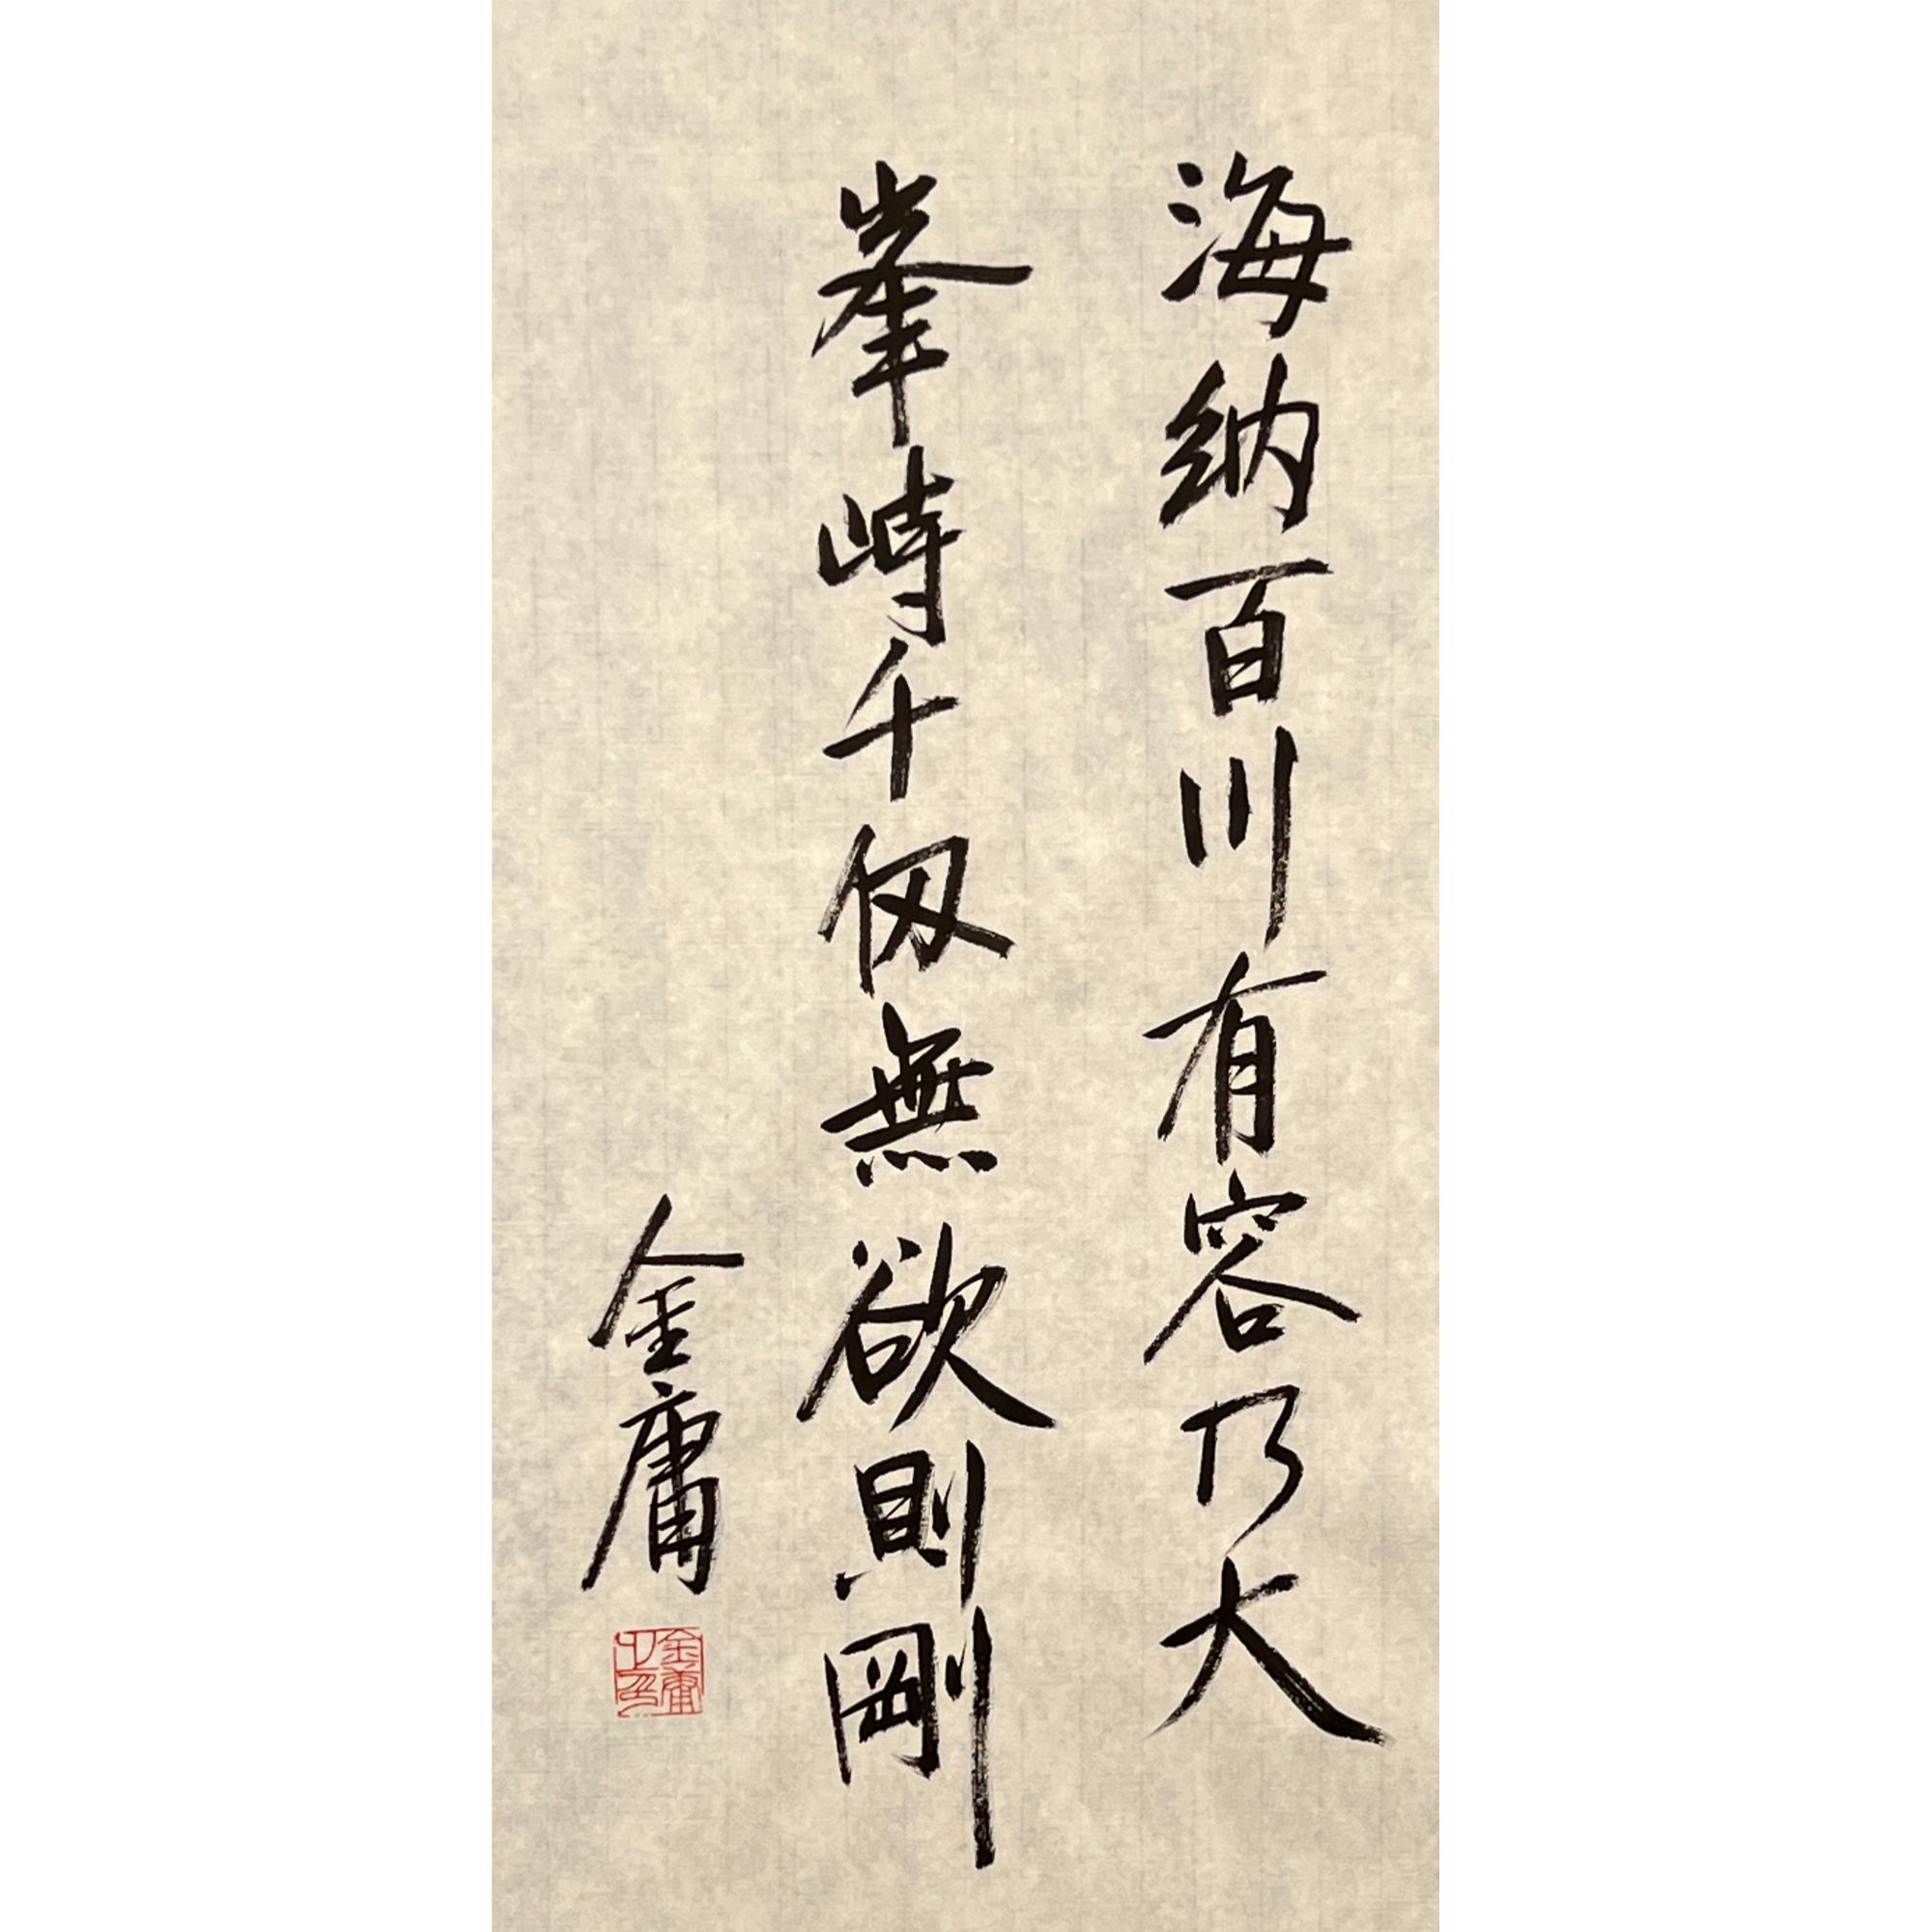 海納百川有容乃大
峯峙千仭無欲則剛
金庸
金庸之印